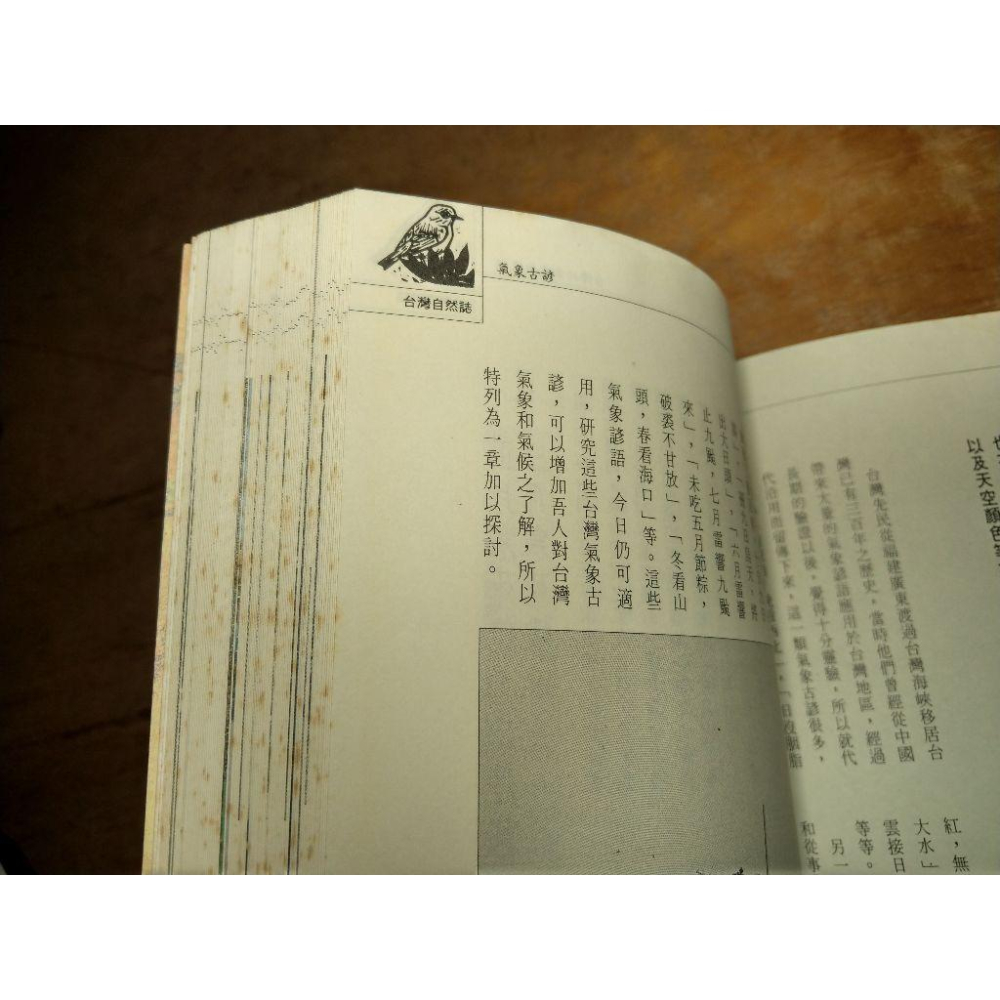 氣象古諺
台灣自然誌
以及天空顏色等
台灣先民從福建廣東渡過台灣海峽移居台
灣已有三百年之歷史，當時他們曾經從中國
帶來大量的氣象諺語應用於台灣地區，經過
長期的驗證以後，覺得十分靈驗，所以就代
代沿用而留傳下來，這一類氣象古諺很多，
紅，無
大水」
雲接日
等等。
另一
和從事
出大日頭」，「六月雷響
止九颱，七月雷響九颱
來」，「未吃五月節粽，
破裘不甘放」，「冬看山
頭，春看海口」等。這些
氣象諺語，今日仍可適
用，研究這些台灣氣象古
諺，可以增加吾人對台灣
氣象和氣候之了解，所以
特列為一章加以探討。